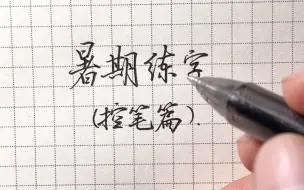 暑期练字
(控笔篇).